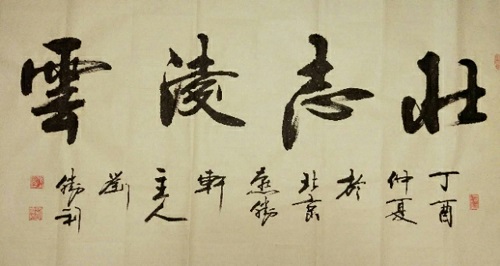 壮志淩雲
丁酉仲夏於北京燕勝軒主人劉勝利